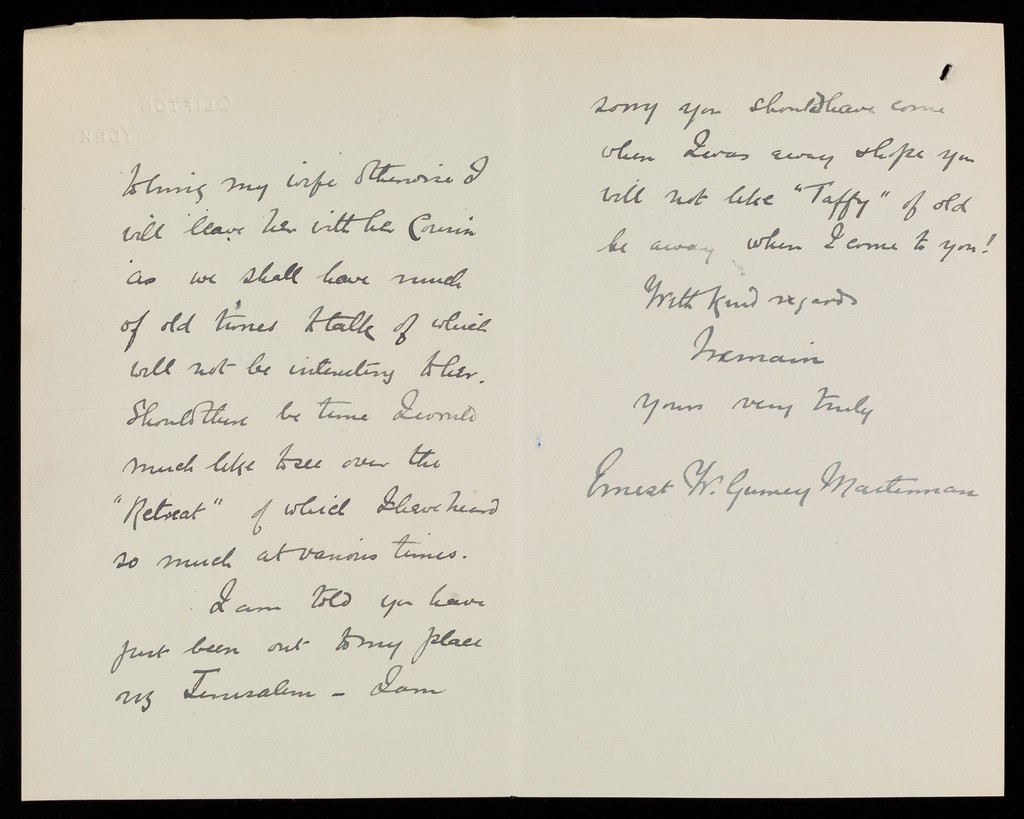 CLIFTON
YORK.
to bring my wife otherwise I
will leave her with her Cousin
as we shall have much
of old times to talk of which
will not be interesting to her.
Should there be time I would
much like to see over the
"Retreat" of which I have heard
so much at various times.
I am told you have
just been out to my place
viz Jerusalem - I am
sorry you should have come
when I was away & hope you
will not like "Taffy" of old
be away when I come to you!
With kind regards
I remain
Yours very truly
Ernest W. Gurney Masterman